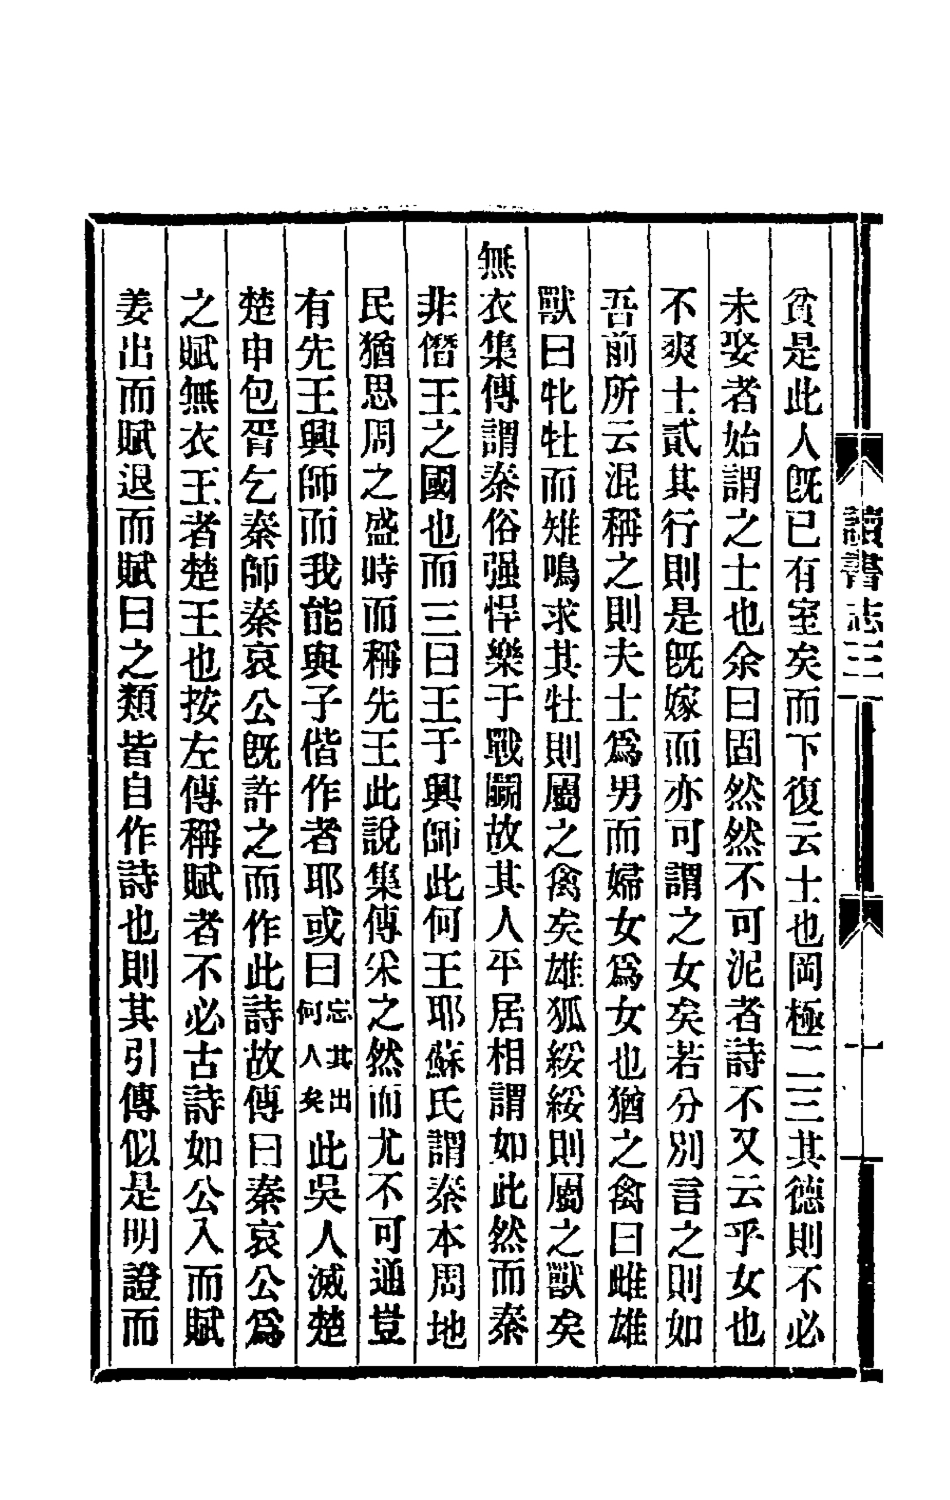 讀書志三
十一
貧是此人旣已有室矣而下復云士也罔極二三其德則不必
未娶者始謂之士也余曰固然然不可泥者詩不又云乎女也
不爽士貳其行則是旣嫁而亦可謂之女矣若分別言之則如
吾前所云混稱之則夫士爲男而婦女爲女也猶之禽曰雌雄
獸曰牝牡而雉鳴求其牡則屬之禽矣雄狐綏綏則屬之獸矣
無衣集傳謂秦俗强悍樂于戰鬬故其人平居相謂如此然而秦
非僭王之國也而三曰王于興師此何王耶蘇氏謂秦本周地
民猶思周之盛時而稱先王此說集傳采之然而尤不可通豈
有先王興師而我能與子偕作者耶或曰忘其出何人矣此吳人滅楚
楚申包胥乞秦師秦哀公旣許之而作此詩故傳曰秦哀公爲
之賦無衣王者楚王也按左傳稱賦者不必古詩如公入而賦
姜出而賦退而賦曰之類皆自作詩也則其引傳似是明證而